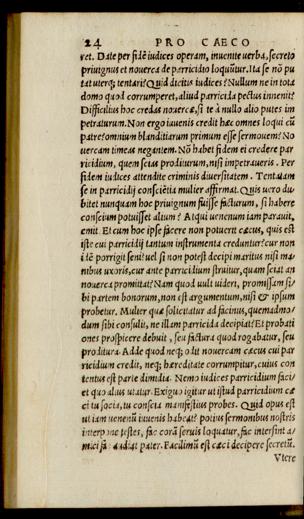 24 PRO CAECO
vet. Date per fidē iudices operam, inuenite uerba, secreto
priuignus et nouerca de parricidio loquūtur. Ita se nō pu
tat uterq; tentari? Quid dicitis iudices? Nullum ne in tota
domo quod corrumperet, aliud parricida pectus inuenit?
Difficilius hoc credas nouercæ, si te à nullo alio putes im
petraturum. Non ergo iauenis credit hæc omnes loqui cū
patre? omnium blanditiarum primum esse sermonem? No
uercam timeas negantem. Nō habet fidem ei credere par
ricidium, quem scias proditurum, nisi impetraueris. Per
fidem iudices attendite criminis diuersitatem. Tentatum
se in parricidij consciētia mulier affirmat. Quis uero du
bitet nunquam hoc priuignum fuisse facturum, si habere
conscium potuisset alium? Atqui uenenum iam parauit,
emit. Et cum hoc ipse facere non potuerit cæcus, quis est
iste cui parricidij tantum instrumenta creduntur? cur non
i tē porrigit seni? uel si non potest decipi maritus nisi ma-
nibus uxoris, cur ante parricidium struitur, quam sciat an
nouerca promittat? Nam quod uult uideri, promissam si/
bi partem bonorum, non est argumentum, nisi & ipsum
probetur. Mulier quæ solicitatur ad facinus, quemadmo/
dum sibi consulit, ne illam parricida decipiat? Et probati
ones prospicere debuit, seu factura quod rogabatur, seu
proditura. Adde quod neq; odit nouercam cæcus cui par
ricidium credit, neq; hæreditate corrumpitur, cuius con
tentus est parte dimidia. Nemo iudices parricidium faci/
et quo alius utatur. Exiguo igitur ut istud parricidium cæ
ci tu socia, tu conscia manifestius probes. Quid opus est
ut iam uenenū iuuenis habeat? potius sermonibus nostris
interpone testes, fac corā seruis loquatur, fac intersint a/
mici, fac audiat pater. Facilimū est cæci decipere secretū.
Vtere